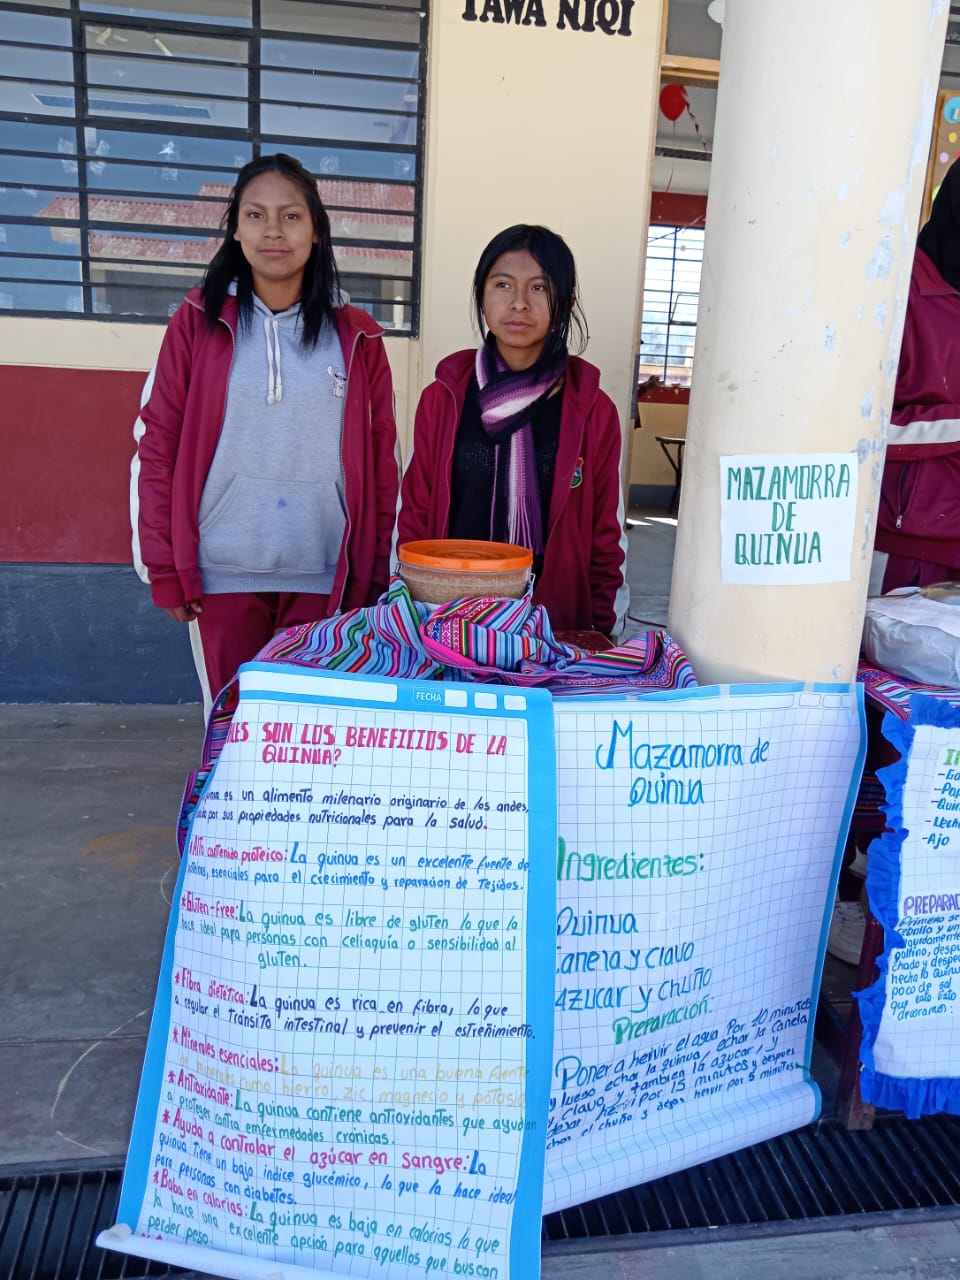 TAWA NIQI
MAZAMORRA
DE
QUINUA
FECHA
SON LOS BENEFICIOS DE LA
QUINUA?
es un alimento milenario originario de los andes,
por sus propiedades nutricionales para la salud.
*Alto contenido proteico: La quinua es un excelente fuente de
esenciales para el crecimiento y reparacion de Tejidos.
*Gluten-free: La quinua es libre de gluten lo que la
hace ideal papa personas con celiaquía o sensibilidad al
gluten.
*Fibra dietética: La quinua es rica en fibra, lo que
a regular el tránsito intestinal y prevenir el estreñimiento.
*Minerales esenciales: La quinua es una buena fuente
de minerales como hierro, zic magnecio y potasio
*Antioxidante: La quinua contiene antioxidantes que ayudan
a proteger contra emfermedades crónicas.
*Ayuda a controlar el azúcar en sangre: La
quinua tiene un bajo índice glucémico, lo que la hace ideal
para personas con diabetes.
*Baba en calorias: La quinua es baja en calorías lo que
la hace una excelente opción para aquellos que buscan
perder peso.
Mazamorra de
Quinua
Ingredientes:
Quinua
Canela y clavo
Azucar y chuño
Preparación:
Poner a hervir el agua Por 10 minutos
y luego echar la quinua, echar la Canela
y Clavo, y tambien la azucar, y
dejar hervir por 15 minutos y despues
echar el chuño y dejar hervir por 5 minutos
-Quin
-Lech
-Ajo
PREPARAC
Primero se
cebolla y un